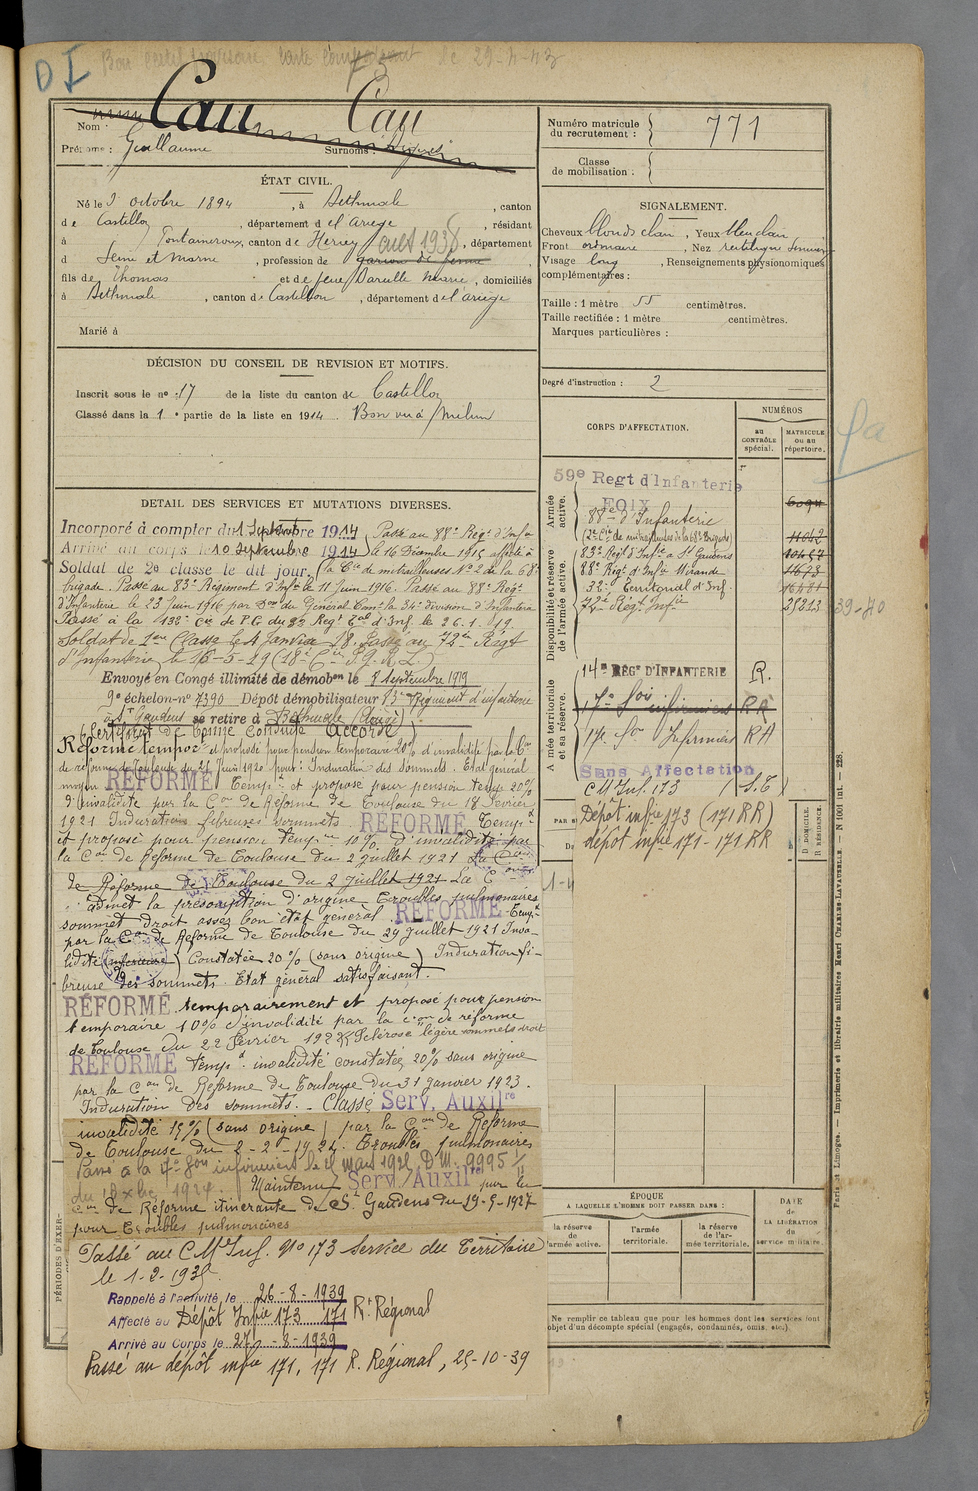 D I Bon certif provisoire carte Combattant le 29-4-43
Nom : Cau Cau
Prénoms : Guillaume Surnoms :
Numéro matricule du recrutement : 771
Classe de mobilisation :
ÉTAT CIVIL.
Né le 3 octobre 1894, à Bethmale, canton
de Castillon, département d el Ariège, résidant
à Fontameroux, canton de Hericy cult 1938, département
d Seine et Marne, profession de garçon de ferme
fils de Thomas et de feue Dareille Marie, domiciliés
à Bethmale, canton de Castillon, département de l'ariège
Marié à
SIGNALEMENT.
Cheveux blonds clair, Yeux bleu clair
Front ordinaire, Nez rectiligne
Visage long, Renseignements physionomiques
complémentaires :
Taille : 1 mètre 55 centimètres.
Taille rectifiée : 1 mètre centimètres.
Marques particulières :
Degré d'instruction : 2
DÉCISION DU CONSEIL DE REVISION ET MOTIFS.
Inscrit sous le no 17 de la liste du canton de Castillon
Classé dans la 1e partie de la liste en 1914. Bon vu à Melun
DETAIL DES SERVICES ET MUTATIONS DIVERSES.
Incorporé à compter du 1 Septembre 1914. Passé au 88e Régt d'Infie
Arrivé au corps le 10 Septembre 1914 le 16 Décembre 1915 affecté à
Soldat de 2e classe le dit jour. (la Cie de mitrailleuses No 2 de la 68e
brigade. Passé au 83e Régiment d'Infie le 11 Juin 1916. Passé au 88e Régt
d'Infanterie le 23 Juin 1916 par Don du Général Comt la 34e division d'Infanterie
Passé à la 132e Cie de P.G. du 32 Régt Eal d'Inf. le 26.1.19
Soldat de 1ère Classe le 4 Janvier 18. Passé au 72ème Régt
d'Infanterie le 16-5-19 (18e Cie P.G.R.L)
Envoyé en Congé illimité de démobon le 8 Septembre 1919
9e échelon-no 7390 Dépôt démobilisateur 83e Régiment d'infanterie
à St Gaudens se retire à Bethmale (Ariège)
Certificat de bonne Conduite Accordé
Réformé tempore et proposé pour pension temporaire 20% d'invalidité par la Con
de réforme de Toulouse du 21 Juin 1920 pour : Induration des Sommets. Etat général
moyen RÉFORMÉ Tempt et proposé pour pension temp 20%
d'invalidité par la Con de Réforme de Toulouse du 18 Février
1921 Induration fibreuse sommets. RÉFORMÉ Tempt
et proposé pour pension tempre 10% d'invalidité par
la Con de Réforme de Toulouse du 2 Juillet 1921 La Con
de Réforme de Toulouse du 2 Juillet 1921 La Con
admet la présomption d'origine Troubles pulmonaires
sommet droit assez bon état général. RÉFORMÉ Tempt
par la Con de Réforme de Toulouse du 29 Juillet 1921 Inva-
lidité (inférieure) Constatée 20% (sans origine) Induration fi-
breuse des sommets. Etat général satisfaisant.
RÉFORMÉ temporairement et proposé pour pension
temporaire 10% d'invalidité par la Con de réforme
de Toulouse du 22 Février 1922 Sclérose légère sommets droit
RÉFORMÉ Tempt invalidité constatée 20% sans origine
par la Con de Réforme de Toulouse du 31 Janvier 1923.
Induration des sommets. - Classé Serv. Auxilre
invalidité 15% (sans origine) par la Con de Réforme
de Toulouse du 2-2-1924. Troubles pulmonaires
Passé à la 17e Son infirmiers le 1 mars 1925 D.M. 9995 1/
du 18 xbre 1924. Maintenu Serv. Auxilre par la
Con de Réforme itinérante de St Gaudens du 19-5-1927
pour Troubles pulmonaires
Passé au C M Inf. No 173 Service du Territoire
le 1-2-193
Rappelé à l'activité le 26-8-1939
Affecté au Dépôt Infie 173 171 Rt Régional
Arrivé au Corps le 27-8-1939
Passé au dépôt infie 171, 171 R. Régional, 25-10-39
CORPS D'AFFECTATION.
NUMÉROS
au CONTRÔLE spécial.
MATRICULE ou au répertoire.
Armée active.
59e Regt d'Infanterie
FOIX 6094
88e d'Infanterie
(2e Cie de mitrailleuses de la 68e Brigade) 11042
Disponibilité et réserve de l'armée active.
83e Régt d'Infie à St Gaudens
88e Régt d'Infie Mirande 11673
32e Territorial d'Inf
72e Régt Infie 25213 39-40
Armée territoriale et sa réserve.
14e RÉGt D'INFANTERIE R.
17e Son infirmiers R A
17e Son Infirmiers R A
Sans Affectation
C M Inf. 173 (S.T)
Dépôt infie 173 (171 RR)
dépôt infie 171 - 171 RR
D DOMICILE. R RÉSIDENCE.
ÉPOQUE
A LAQUELLE L'HOMME DOIT PASSER DANS :
la réserve de l'armée active.
l'armée territoriale.
la réserve de l'armée territoriale.
DATE de LA LIBÉRATION du service militaire.
Ne remplir ce tableau que pour les hommes dont les services font
objet d'un décompte spécial (engagés, condamnés, omis, etc.)
PÉRIODES D'EXER-
Paris et Limoges. — Imprimerie et librairie militaires Henri CHARLES-LAVAUZELLE. — N 1001 int. — 228.